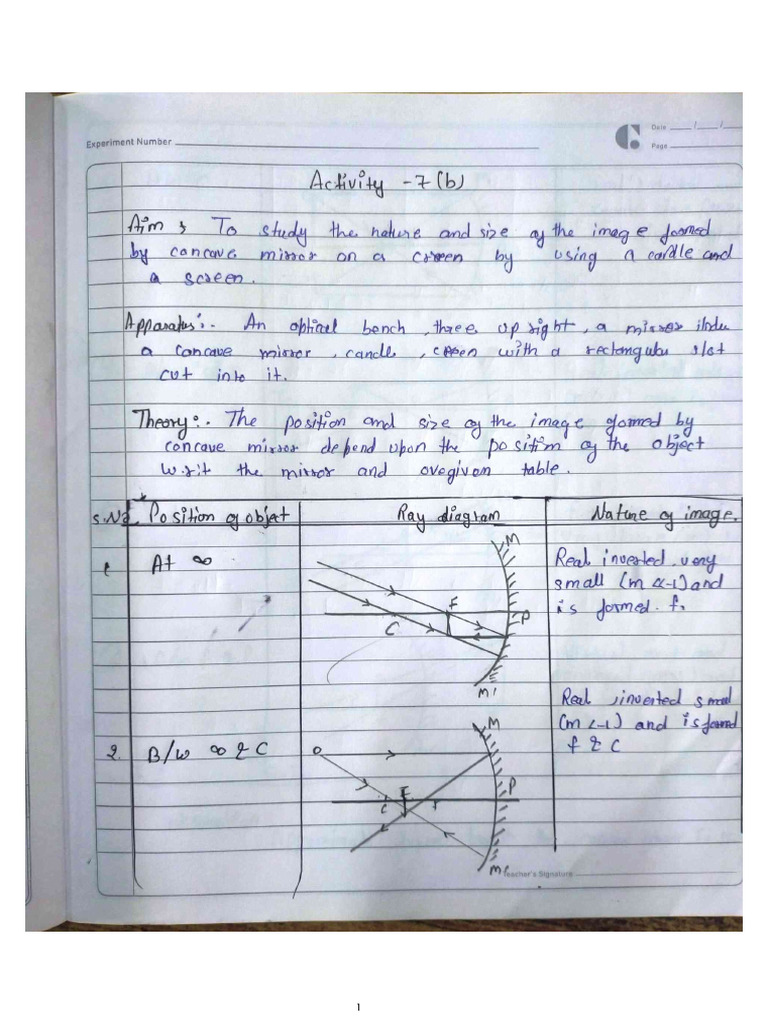 Experiment Number
Date / /
Page
Activity -7 (b)
Aim : To study the nature and size of the image formed
by concave mirror on a screen by using a candle and
a screen.
Apparatus:- An optical bench, three up right, a mirror
a concave mirror, candle, screen with a rectangular slot
cut into it.
Theory:- The position and size of the image formed by
concave mirror depend upon the position of the object
w.r.t the mirror and are given table.
S.No. Position of object Ray diagram Nature of image.
1 At ∞
Real inverted very
small (m <<-1) and
is formed f.
M
F
C
P
M'
2. B/w ∞ & C
Real, inverted small
(m <-1) and is formed
f & C
M
O
P
C
F
Teacher's Signature
1